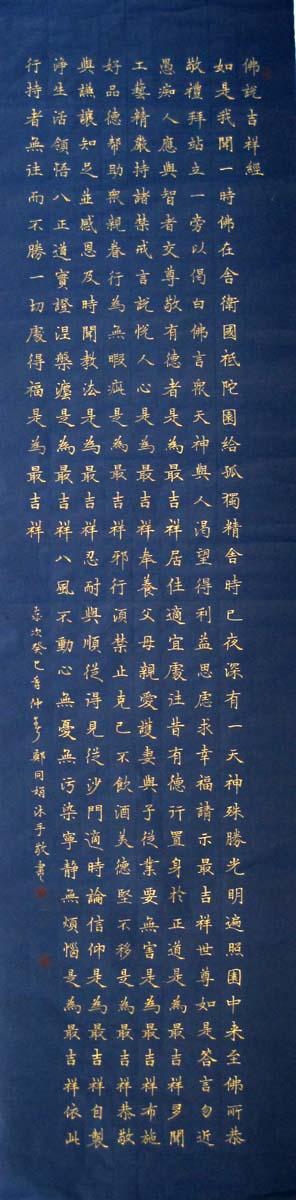 佛說吉祥經
如是我聞一時佛在舍衛國祇陀園給孤獨精舍時已夜深有一天神殊勝光明遍照園中来至佛所恭
敬禮拜站立一旁以偈白佛言衆天神與人渴望得利益思慮求幸福請示最吉祥世尊如是答言勿近
愚痴人應與智者交尊敬有德者是為最吉祥居住適宜處往昔有德行置身於正道是為最吉祥多聞
工藝精嚴持諸禁戒言說悅人心是為最吉祥奉養父母親愛護妻與子從業要無害是為最吉祥布施
好品德幫助衆親眷行為無瑕疵是為最吉祥邪行須禁止克己不飲酒美德堅不移是為最吉祥恭敬
與謙讓知足並感恩及時聞教法是為最吉祥忍耐與順從得見從沙門適時論信仰是為最吉祥自製
淨生活領悟八正道實證涅槃瀘是為最吉祥八風不動心無憂無污染寧静無煩惱是為最吉祥依此
行持者無往而不勝一切處得福是為最吉祥
歲次癸巳香仲夏鄭同娟沐手敬書